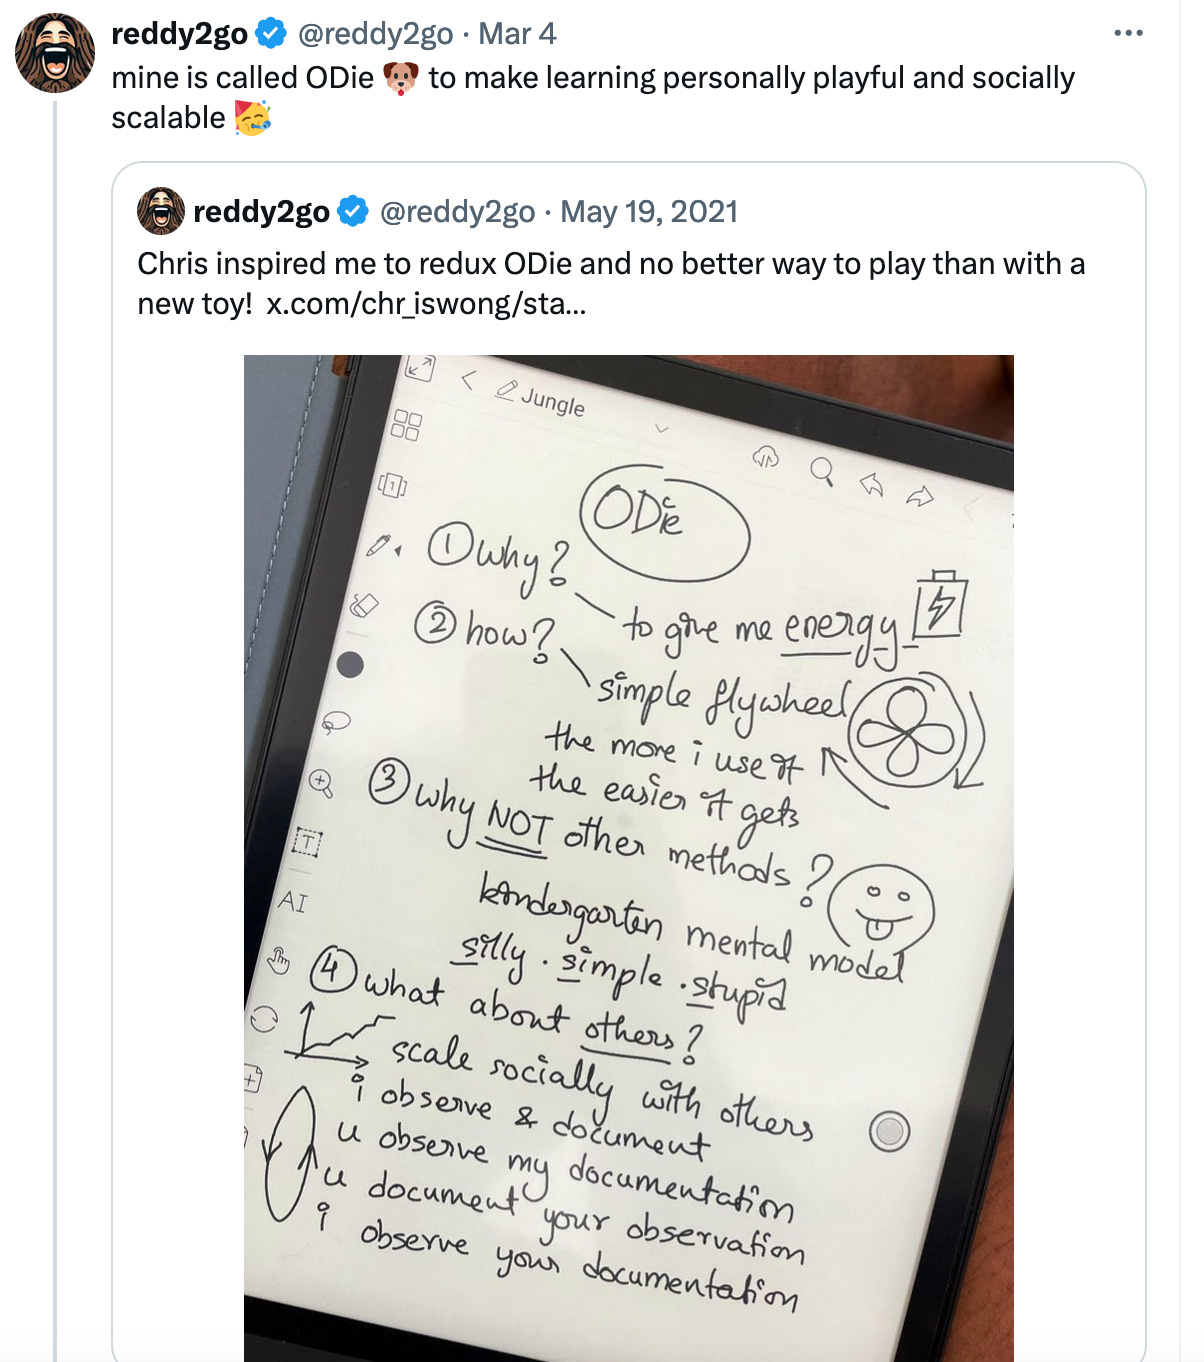 reddy2go @reddy2go · Mar 4
mine is called ODie 🐶 to make learning personally playful and socially
scalable 🥳
reddy2go @reddy2go · May 19, 2021
Chris inspired me to redux ODie and no better way to play than with a
new toy! x.com/chr_iswong/sta...
Jungle
ODie
① why?
to give me energy
② how?
simple flywheel
the more i use it
the easier it gets
③ why NOT other methods?
kindergarten mental model
silly · simple · stupid
④ what about others?
scale socially with others
i observe & document
u observe my documentation
u document your observation
i observe your documentation
T
AI
1